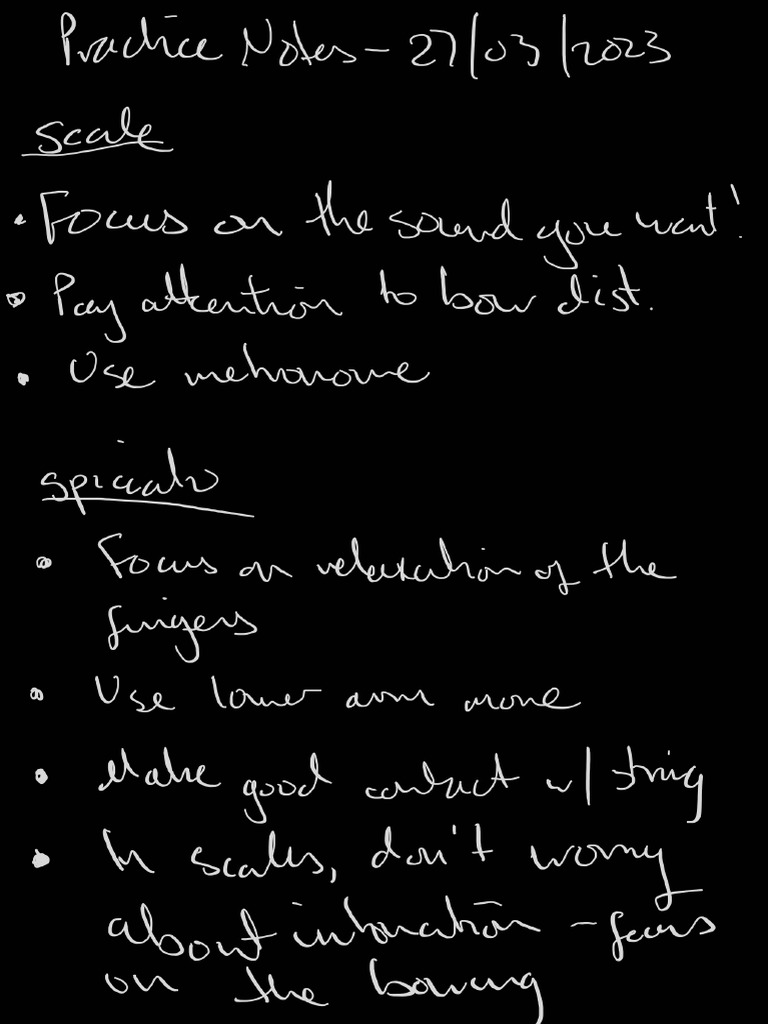 Practice Notes - 27/03/2023
scale
• Focus on the sound you want!
• Pay attention to bow dist.
• Use metronome
spiccato
• Focus on relaxation of the
fingers
• Use lower arm more
• Make good contact w/ string
• In scales, don't worry
about intonation - focus
on the bowing